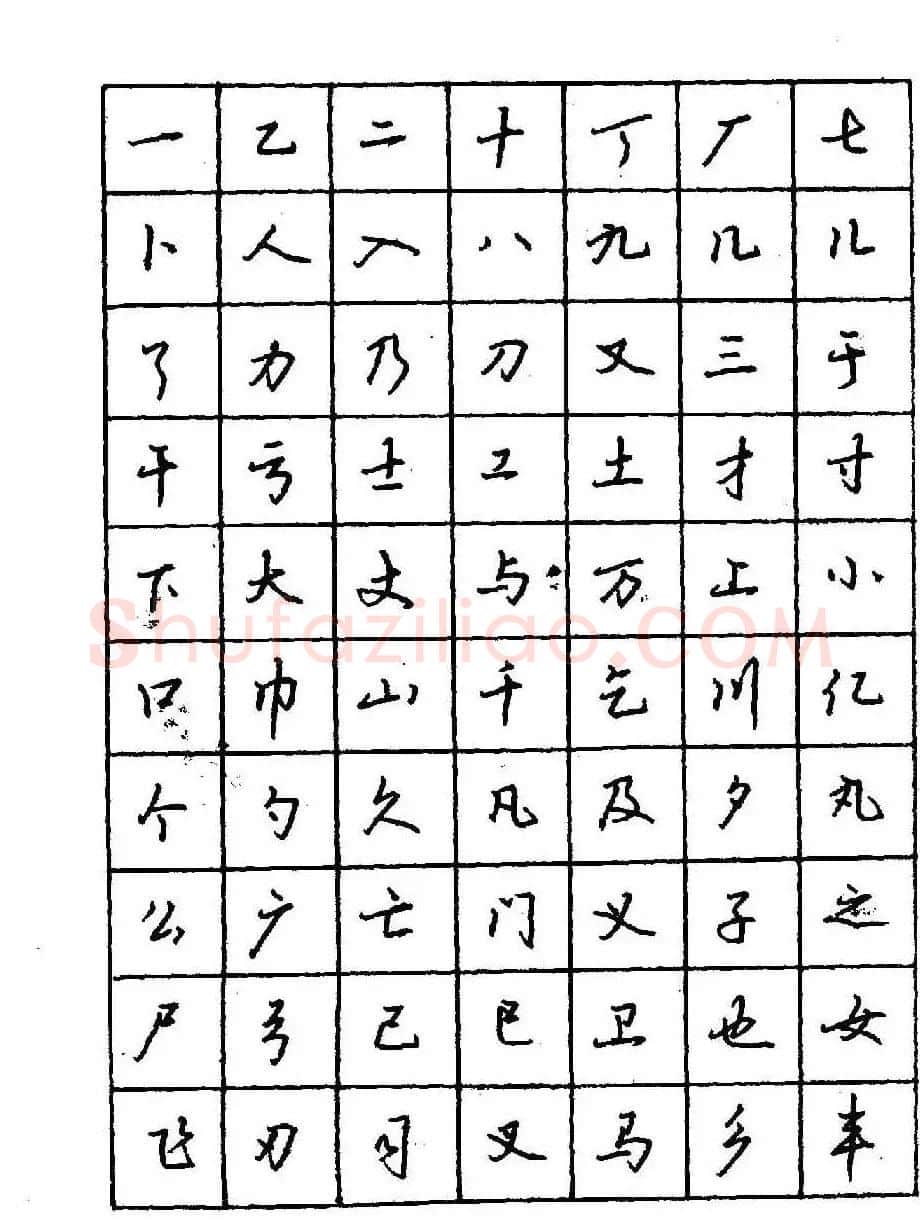 一 乙 二 十 丁 厂 七
卜 人 入 八 九 几 儿
了 力 乃 刀 又 三 于
干 亏 士 工 土 才 寸
下 大 丈 与 万 上 小
Shufaziliao.COM
口 巾 山 千 乞 川 亿
个 勺 久 凡 及 夕 丸
么 广 亡 门 义 子 之
尸 弓 己 巳 卫 也 女
飞 刃 习 叉 马 乡 丰